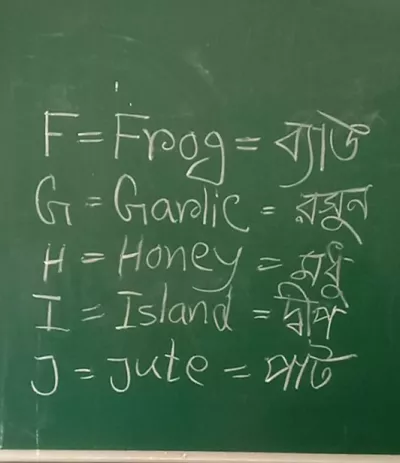 F = Frog = ব্যাঙ
G = Garlic = রসুন
H = Honey = মধু
I = Island = দ্বীপ
J = Jute = পাট